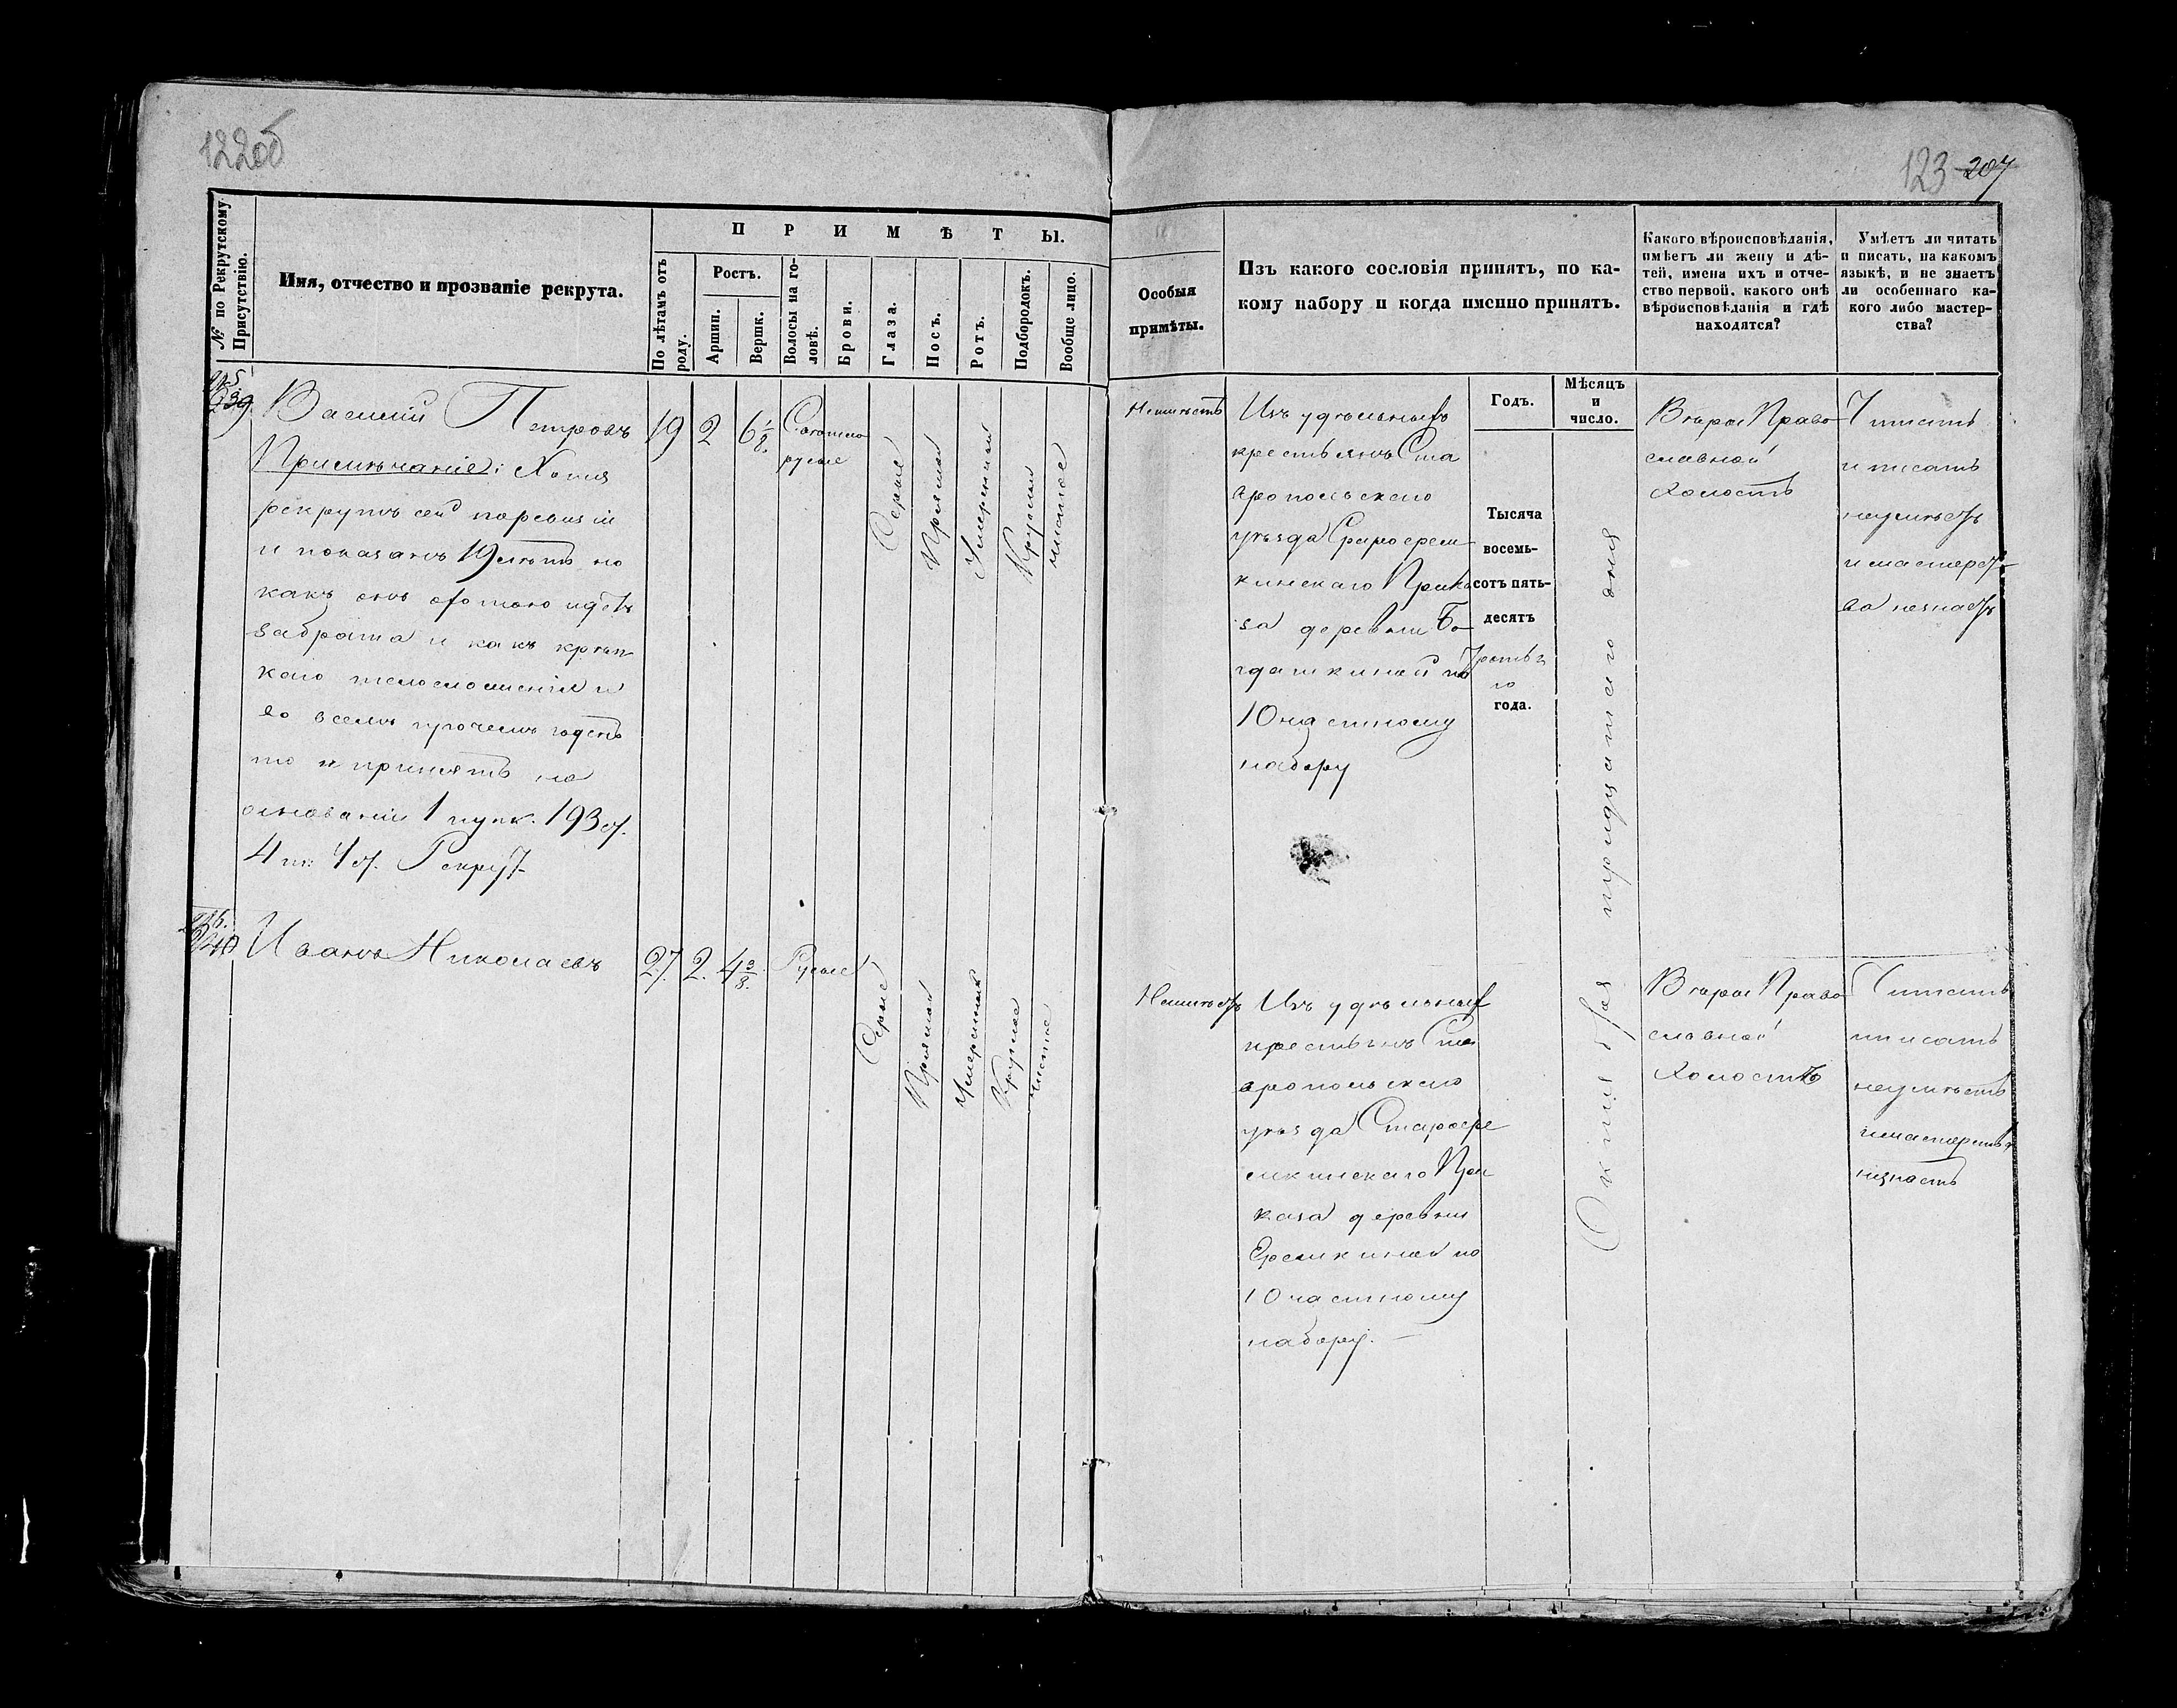 122об
123 207
№ по Рекрутскому Присутствію.
Имя, отчество и прозваніе рекрута.
ПРИМѢТЫ.
По лѣтамъ отъ роду.
Ростъ.
Аршин.
Вершк.
Волосы на головѣ.
Брови.
Глаза.
Носъ.
Ротъ.
Подбородокъ.
Вообще лицо.
Особыя
примѣты.
Изъ какого сословія принятъ, по ка-
кому набору и когда именно принятъ.
Какого вѣроисповѣданія,
имѣетъ ли жену и дѣ-
тей, имена ихъ и отче-
ство первой, какого онѣ
вѣроисповѣданія и гдѣ
находятся?
Умѣетъ ли читать
и писать, на какомъ
языкѣ, и не знаетъ
ли особеннаго ка-
кого либо мастер-
ства?
Годъ.
Мѣсяцъ
и
число.
239
Василій Петровъ
Примѣчаніе: Хотя
рекрутъ сей по ревизіи
и показанъ 19 лѣтъ но
какъ онъ охотою идетъ
за брата и какъ крѣп
каго тѣлосложенія и
во всемъ прочемъ годенъ
то и принятъ на
основаніи 1 пунк. 193 ст.
4 1 ст. Рекрут.
19
2
6 1/8.
Свѣтло
русые
Сѣрые
Прямой
Умѣренный
Круглый
чистое
Неимѣетъ
Изъ удѣльныхъ
крестьянъ Ста
вропольскаго
уѣзда Староерем
кинскаго Прика
за деревни Бо
гдашкиной по
10 частному
набору
Тысяча
восемь-
сотъ пять-
десятъ
Третья
го
года.
Октября тридцатаго дня
Вѣры Право
славной
Холостъ
Читать
и писать
неумѣетъ
и мастерст
ва незнаетъ
240
Иванъ Николаевъ
27.
2.
4 3/8.
Русые
Сѣрые
Прямой
Умѣренный
Круглое
чистое
Неимѣетъ
Изъ удѣльныхъ
крестьянъ Ста
вропольскаго
уѣзда Старосре
мкинскаго При
каза деревни
Еремкиной по
10 частному
набору.
Вѣры Право
славной
Холостъ
Читать
и писать
неумѣетъ
и мастерства
незнаетъ